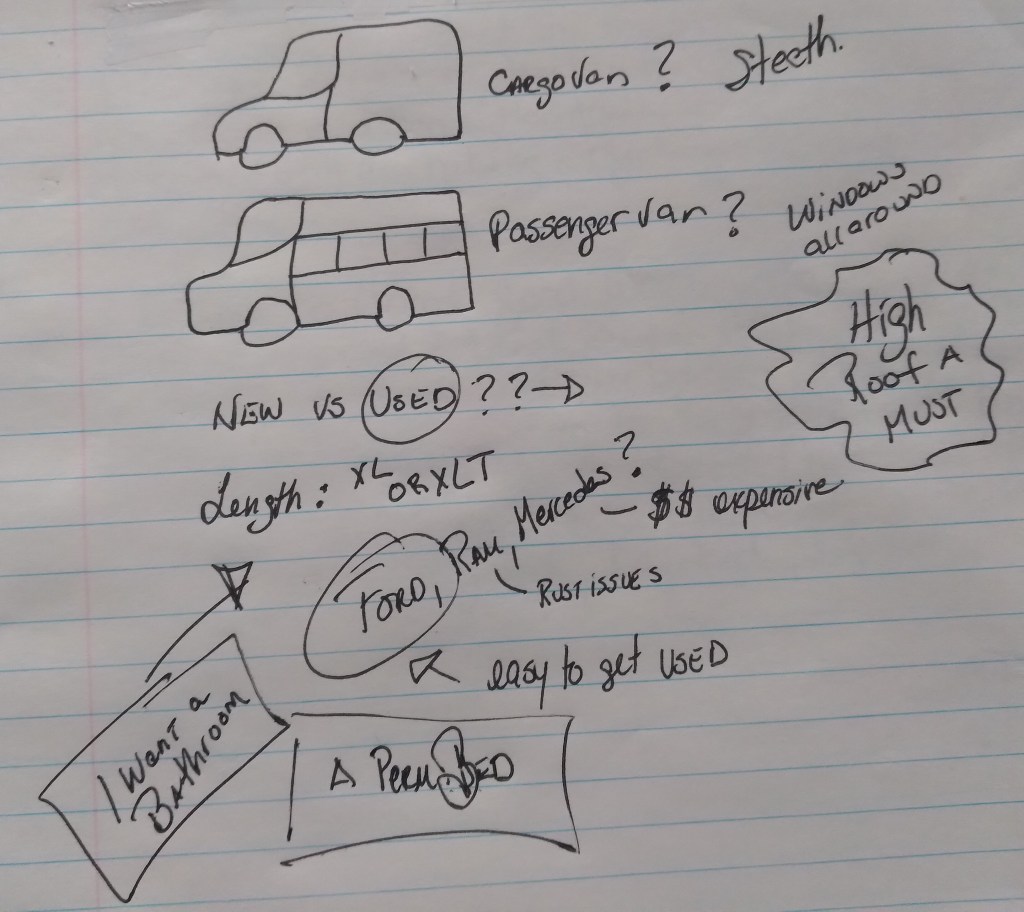 CARgoVan ? Steeth.
Passenger Van ? WiNDOWS
all arouND
High
Roof A
MUST
NEW VS USED ??
Length: XL OR XLT
FORD, RAM, Mercedes?
— $$ expensive
RUST ISSUES
easy to get USED
I Want a
BAthroom
A PERM. BED